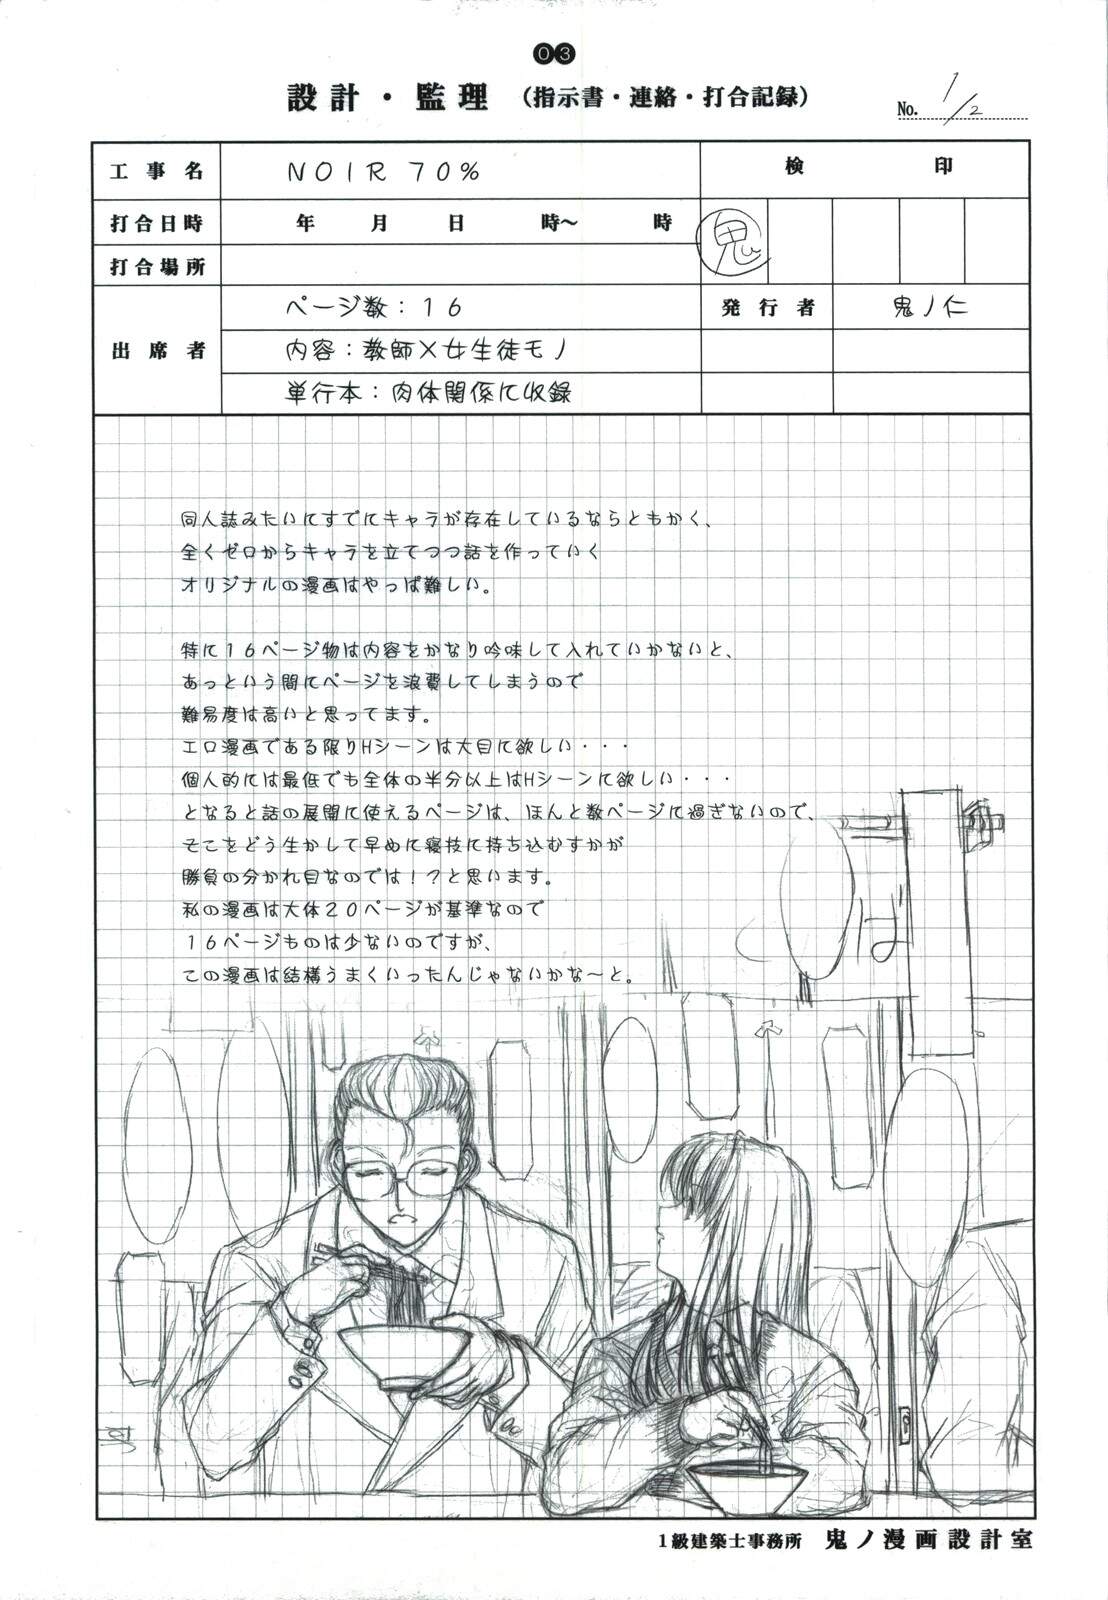 03
設計・監理 (指示書・連絡・打合記録)
No. 1/2
工事名 NOIR 70% 検 印
打合日時 年 月 日 時〜 時 鬼
打合場所
出席者 ページ数：16 発行者 鬼ノ仁
内容：教師×女生徒モノ
単行本：肉体関係に収録
同人誌みたいにすでにキャラが存在しているならともかく、
全くゼロからキャラを立てつつ話を作っていく
オリジナルの漫画はやっぱ難しい。
特に16ページ物は内容をかなり吟味して入れていかないと、
あっという間にページを浪費してしまうので
難易度は高いと思ってます。
エロ漫画である限りHシーンは大目に欲しい・・・
個人的には最低でも全体の半分以上はHシーンに欲しい・・・
となると話の展開に使えるページは、ほんと数ページに過ぎないので、
そこをどう生かして早めに寝技に持ち込むすかが
勝負の分かれ目なのでは！？と思います。
私の漫画は大体20ページが基準なので
16ページものは少ないのですが、
この漫画は結構うまくいったんじゃないかな〜と。
ば
1級建築士事務所 鬼ノ漫画設計室